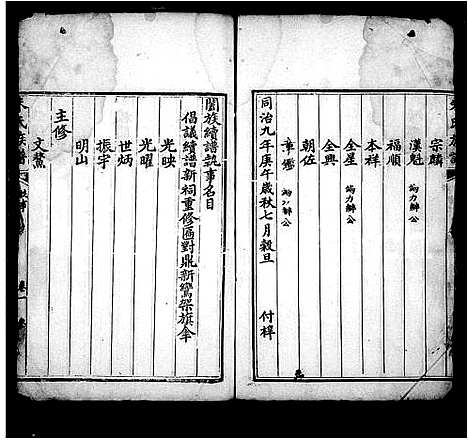 宗麟
漢魁 協力辦公
福順
本祥
全星 協力辦公
全興
朝佐
章鑑 協力辦公
同治九年庚午歲秋七月穀旦 付梓
闔族續譜執事名目
倡議續譜新祠重修匾對鼎新鸞架旗傘
光映
光曜
世炳
振宇
明山
主修
文鰲
氏族譜 卷一